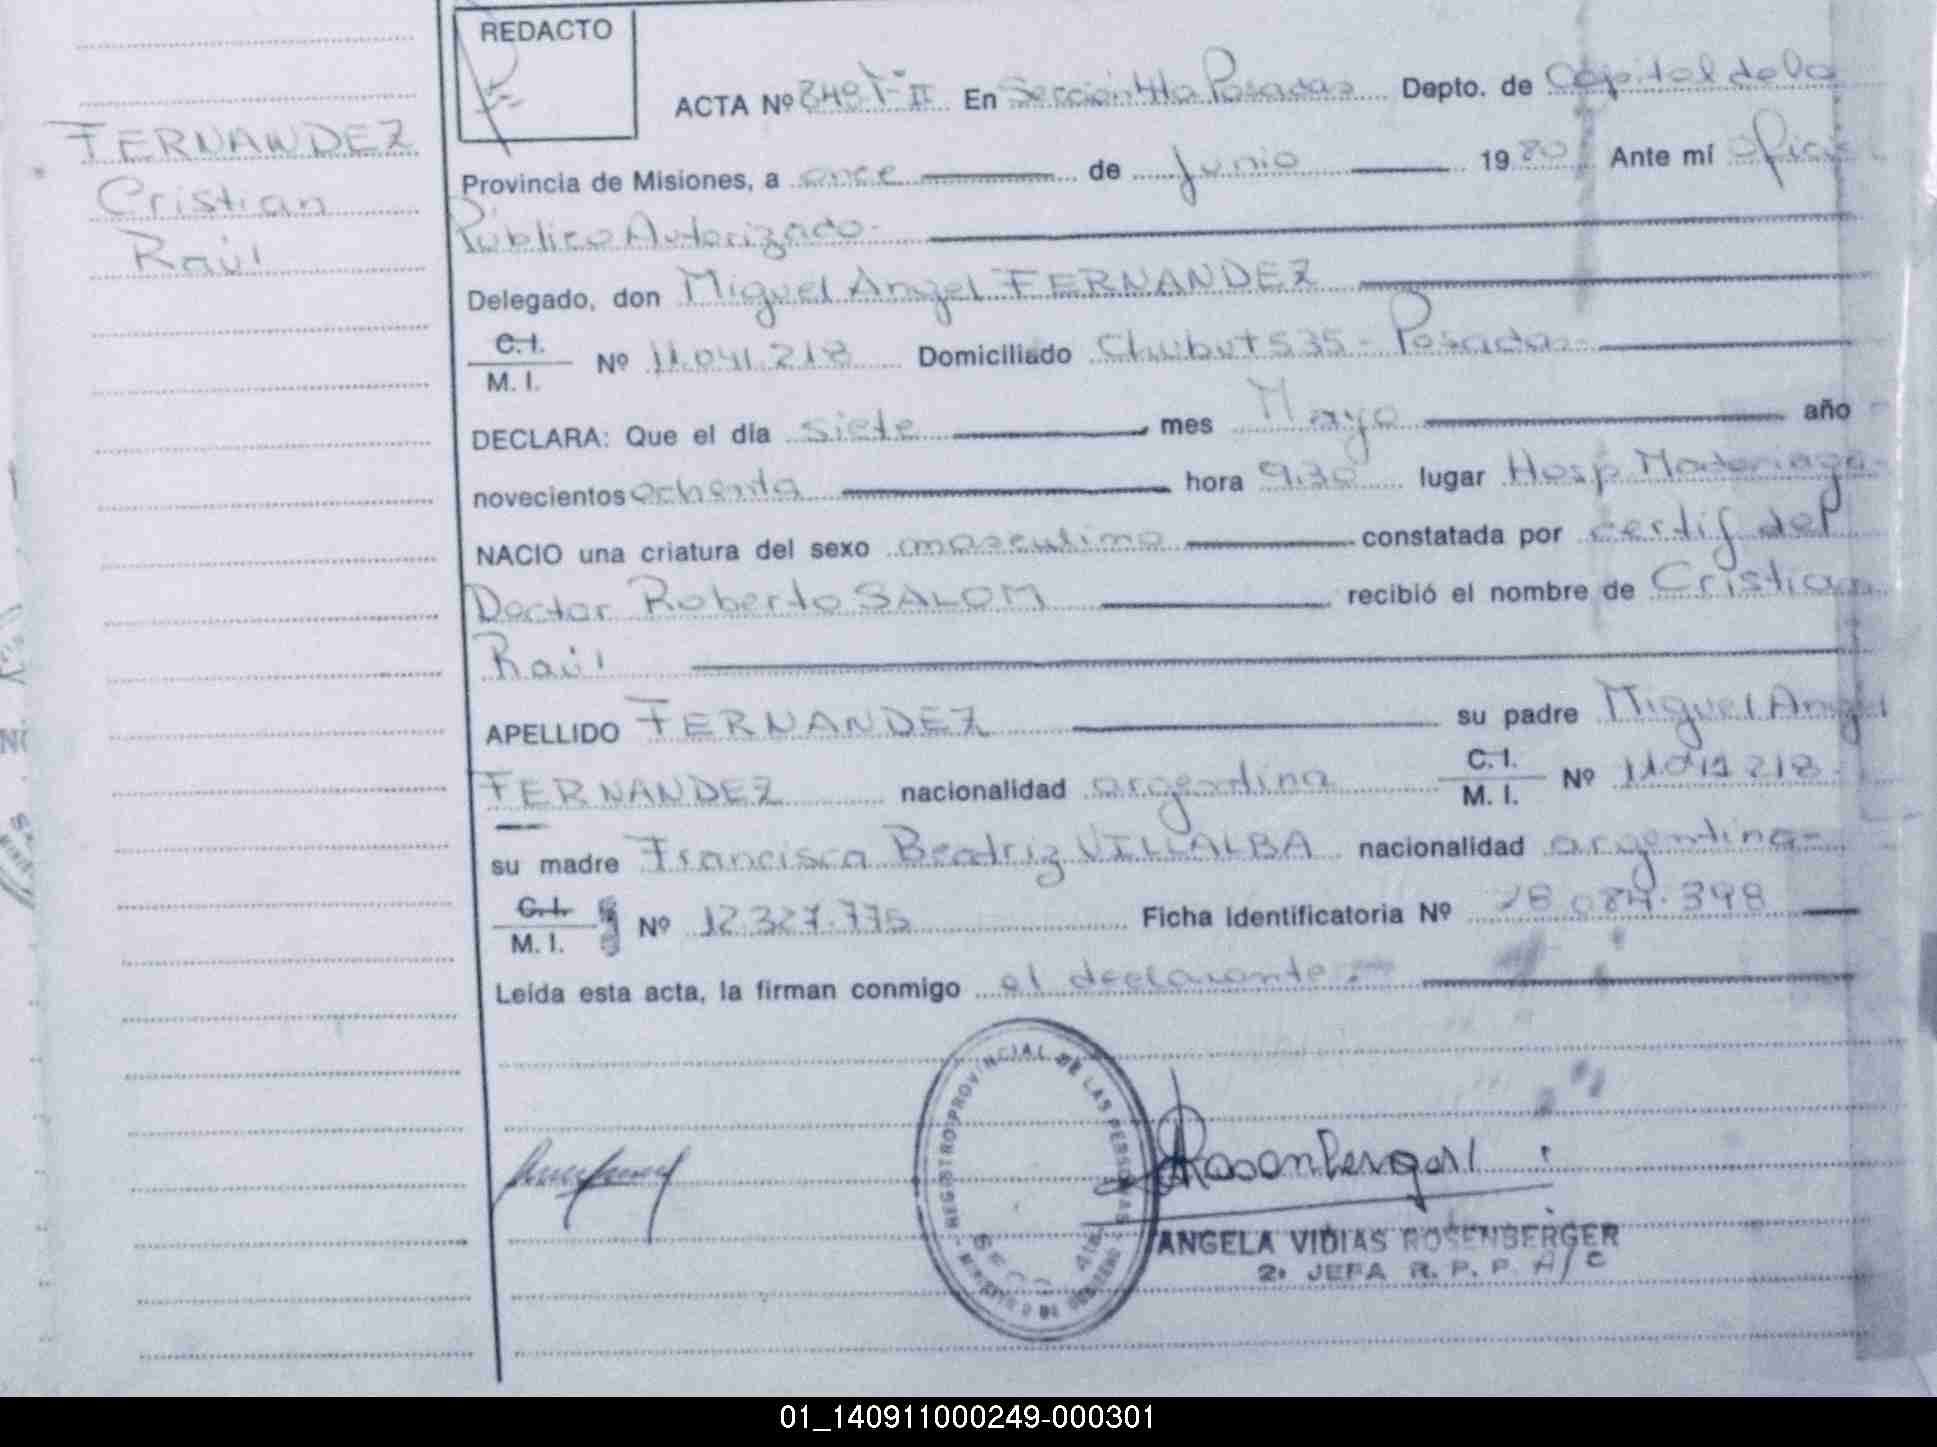 REDACTO
FERNANDEZ
Cristian
Raúl
ACTA Nº 349 T-II En Sección 4ta Posadas Depto. de Capital de la
Provincia de Misiones, a once de Junio 1980 Ante mí Oficial
Público Autorizado
Delegado, don Miguel Angel FERNANDEZ
C.I. / M. I. Nº 11.041.218 Domiciliado Chubut 535 - Posadas
DECLARA: Que el día siete mes Mayo año
novecientos ochenta hora 9.30 lugar Hosp. Madariaga
NACIO una criatura del sexo masculino constatada por certif del
Doctor Roberto SALOM recibió el nombre de Cristian
Raúl
APELLIDO FERNANDEZ su padre Miguel Angel
FERNANDEZ nacionalidad argentina C.I. / M. I. Nº 11041218
su madre Francisca Beatriz VILLALBA nacionalidad argentina
C.I. / M. I. Nº 12.327.775 Ficha identificatoria Nº 28.084.398
Leída esta acta, la firman conmigo el declarante.
REGISTRO PROVINCIAL DE LAS PERSONAS
MINISTERIO DE GOBIERNO
SECC. 4ta
Rosenberger
ANGELA VIDIAS ROSENBERGER
2º JEFA R. P. P. A/C
01_140911000249-000301